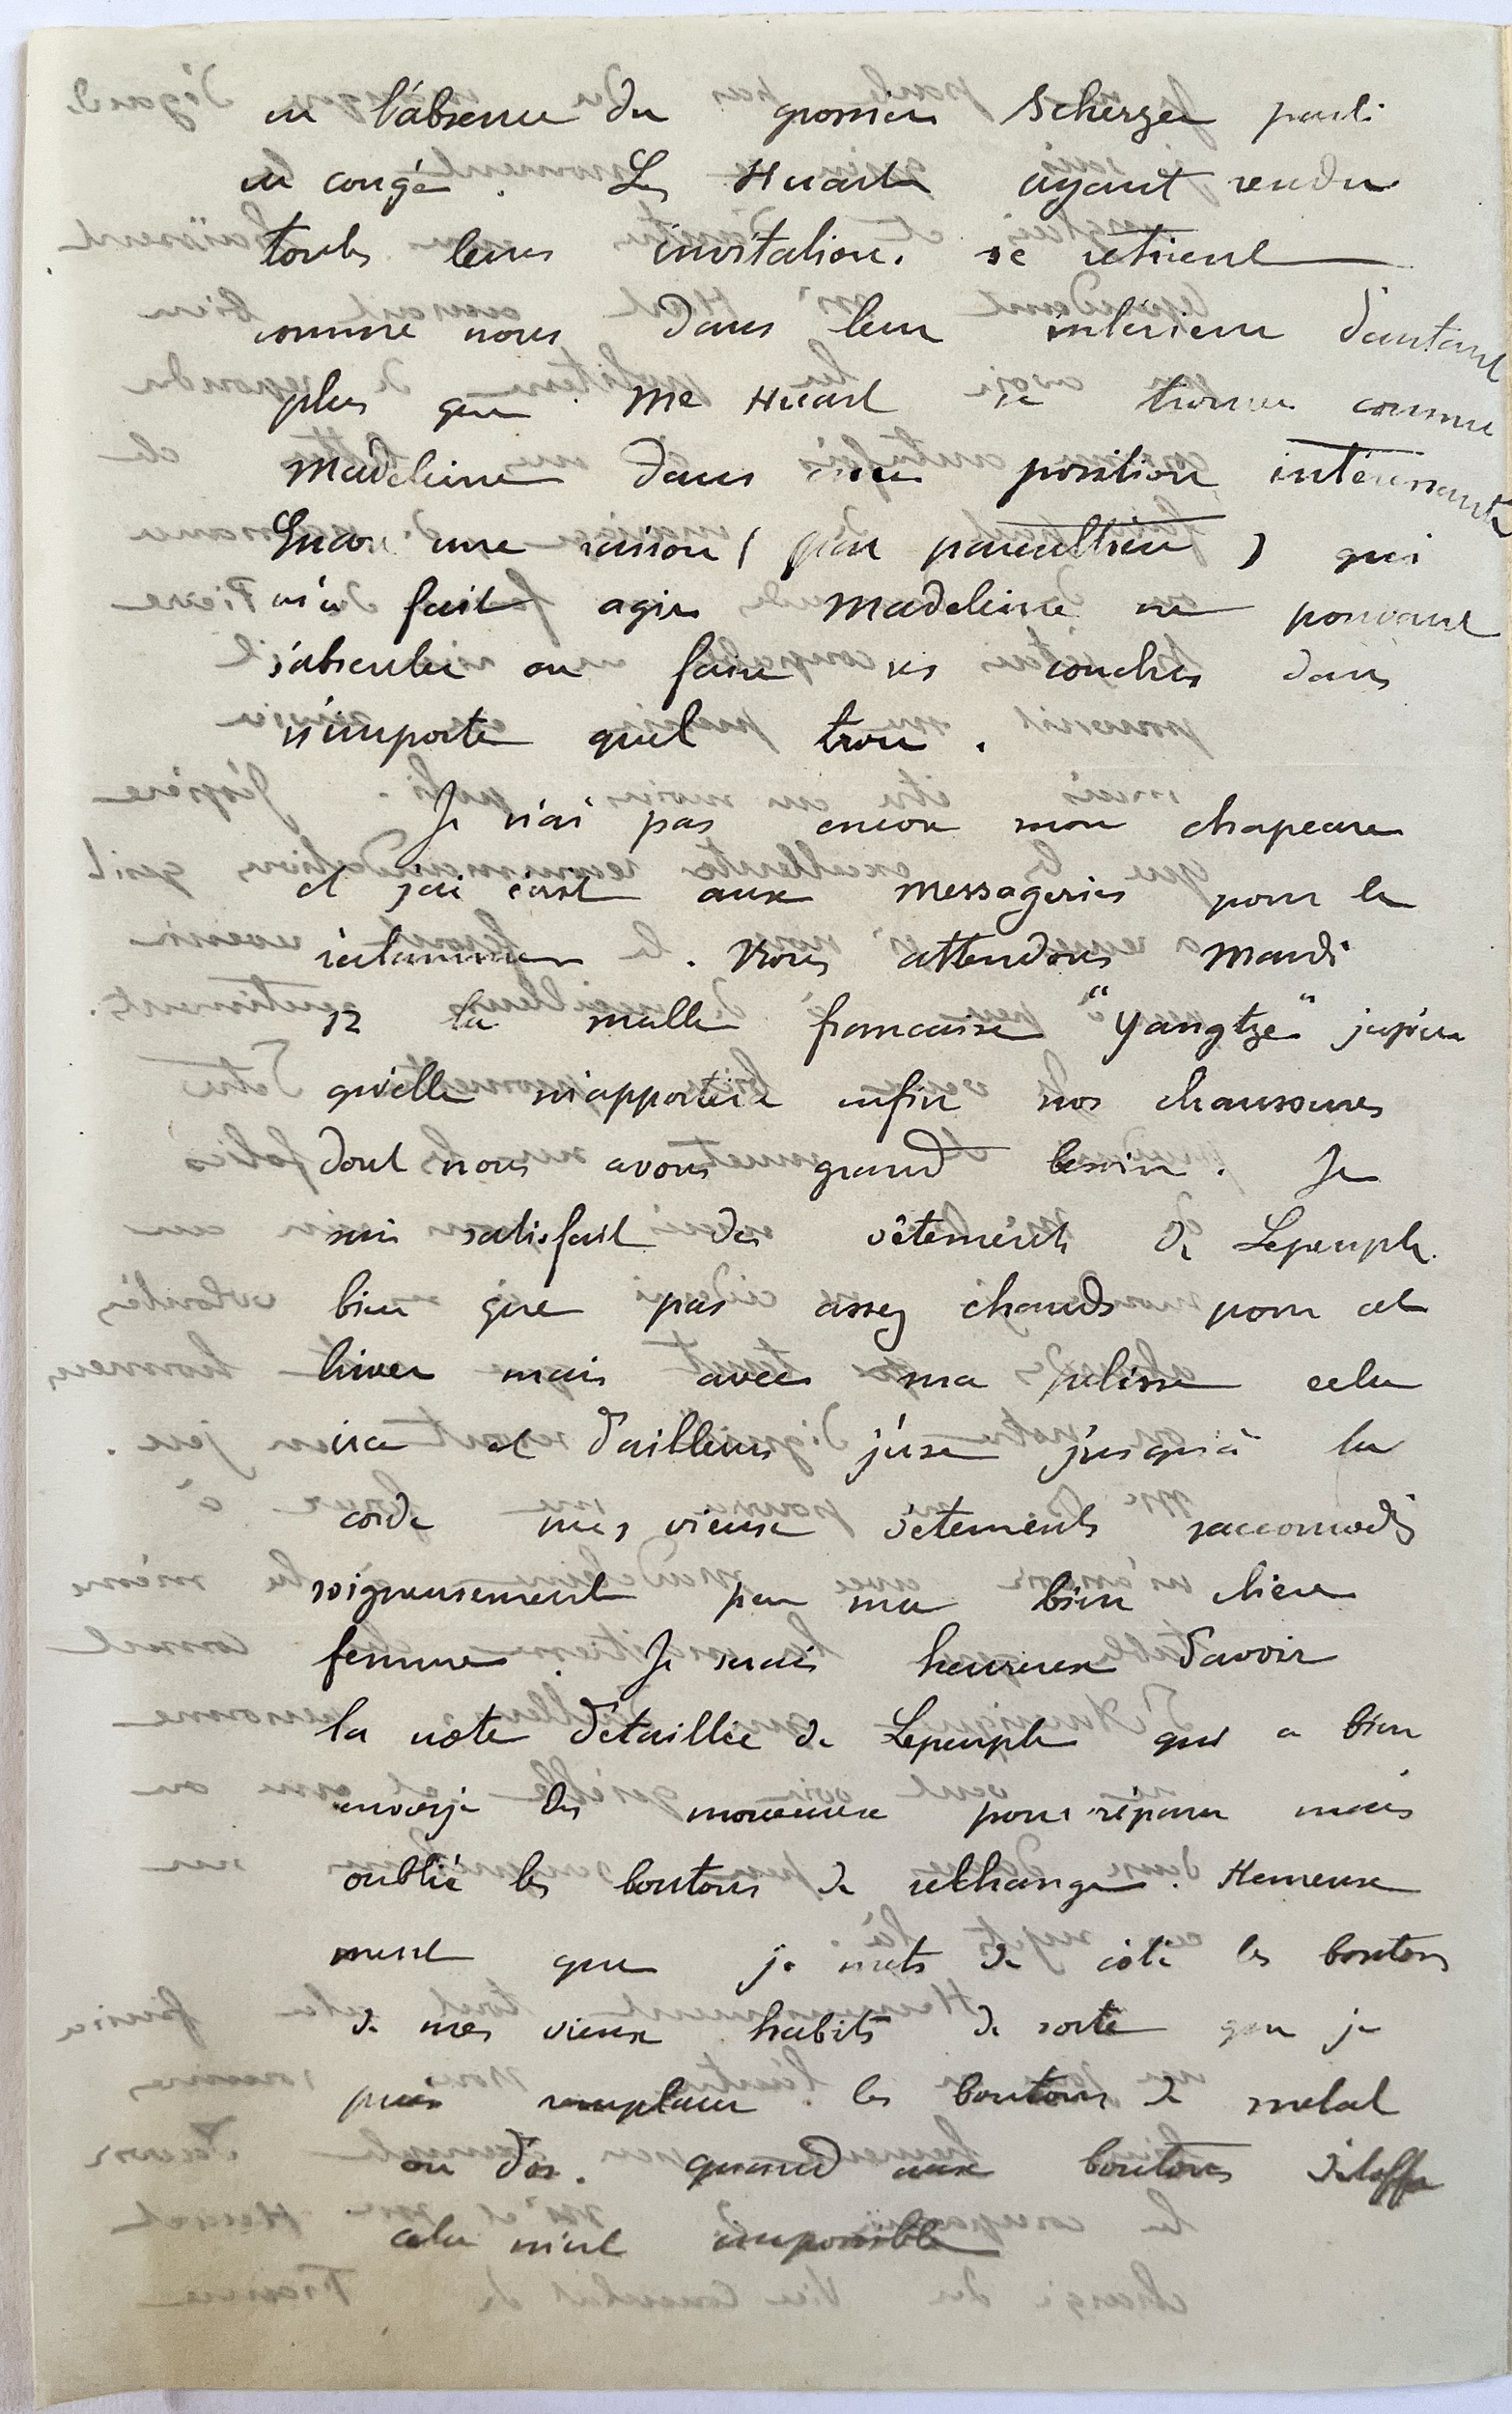 en l'absence du grossier Scherzer parti
en congé. Les Huart ayant rendu
toutes leurs invitation. se retirent
comme nous dans leur intérieur d'autant
plus que Me Huart se trouve comme
Madeleine dans une position intéressante
Encore une raison (par parenthèse) qui
m'a fait agir Madeleine ne pouvant
s'absenter ou faire ses couches dans
n'importe quel trou.
Je n'ai pas encore mon chapeau
et j'ai écrit aux messageries pour le
réclamer. Nous attendons Mardi
12 la malle francaise "Yangtze" j'espère
qu'elle m'apportera enfin nos chaussures
dont nous avons grand besoin. Je
suis satisfait des vêtements de Lepeuple.
bien que pas assez chauds pour cet
hiver mais avec ma pelisse cela
ira et d'ailleurs j'use jusqu'à la
corde mes vieux vêtements raccomodés
soigneusement par ma bien chere
femme. Je serais heureux d'avoir
la note détaillée de Lepeuple qui a bien
envoyé des morceaux pour réparer mais
oublié les boutons de rechange. Heureuse
ment que je mets de côté les boutons
de mes vieux habits de sorte que je
puis remplacer les boutons de metal
ou d'os. quand aux boutons d'étoffe
cela m'est impossible